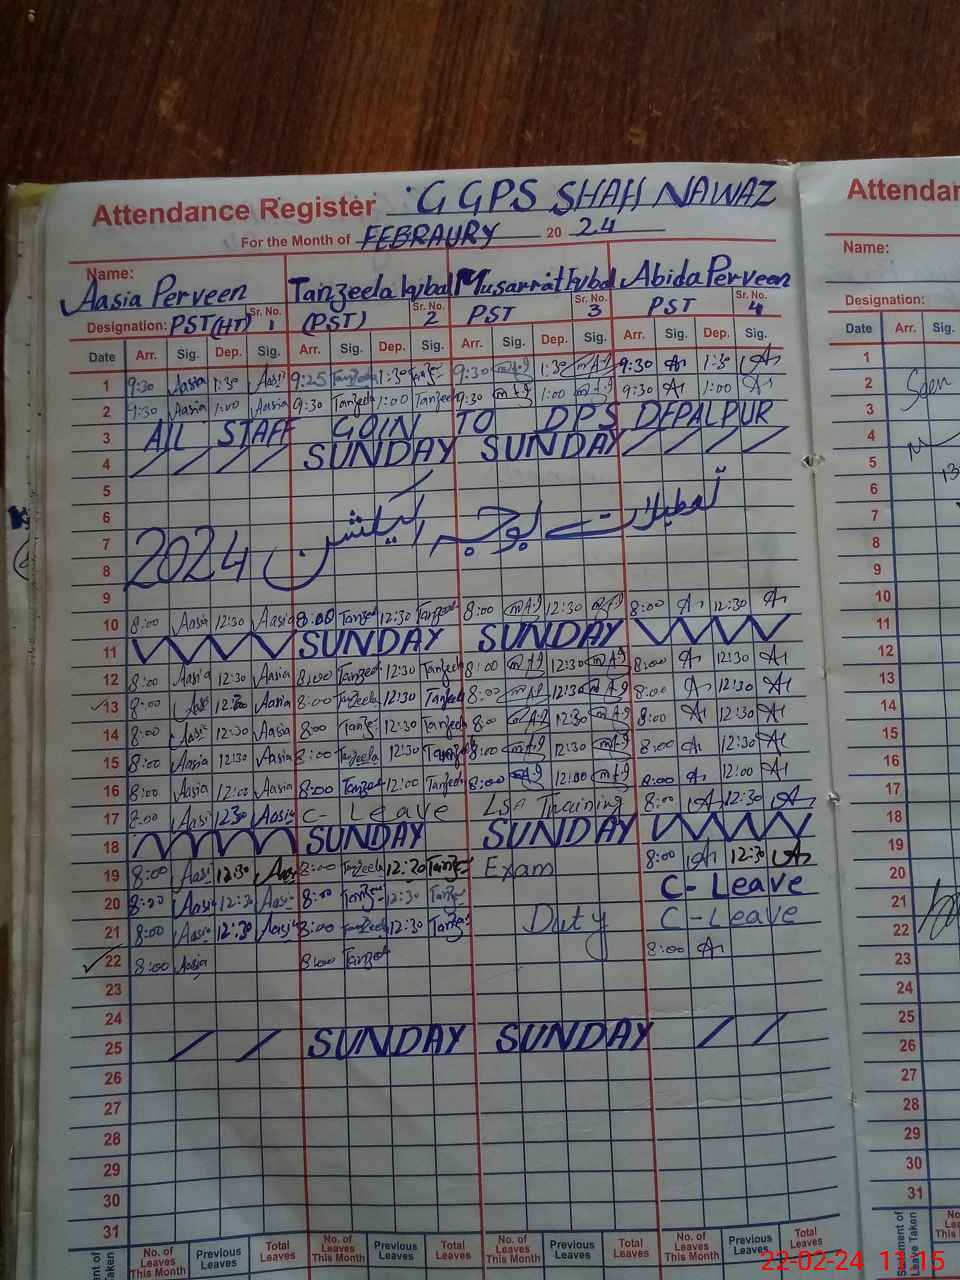 Attendance Register G GPS SHAH NAWAZ
For the Month of FEBRAURY 20 24
Name:
Aasia Perveen Tanzeela Iqbal Musarrat Iqbal Abida Perveen
Designation: PST(HT) Sr. No. 1 (PST) Sr. No. 2 PST Sr. No. 3 PST Sr. No. 4
Date Arr. Sig. Dep. Sig. Arr. Sig. Dep. Sig. Arr. Sig. Dep. Sig. Arr. Sig. Dep. Sig.
1 9:30 Aasia 1:30 Aasi 9:25 Tanzeela 1:30 Tanz 9:30 1:30 9:30 1:30
2 9:30 Aasia 1:00 Aasia 9:30 Tanzeela 1:00 Tanzeela 9:30 1:00 9:30 1:00
3 All STAFF GOIN TO DPS DEPALPUR
4 SUNDAY SUNDAY
5
6
7 تعطیلات بوجہ الیکشن 2024
8
9
10 8:00 Aasia 12:30 Aasia 8:00 Tanzee 12:30 Tanzee 8:00 12:30 8:00 12:30
11 SUNDAY SUNDAY
12 8:00 Aasia 12:30 Aasia 8:00 Tanzee 12:30 Tanzeela 8:00 12:30 8:00 12:30
13 8:00 Aasi 12:30 Aasia 8:00 Tanzeela 12:30 Tanzeela 8:00 12:30 8:00 12:30
14 8:00 Aasi 12:30 Aasia 8:00 Tanz 12:30 Tanzeela 8:00 12:30 8:00 12:30
15 8:00 Aasia 12:30 Aasia 8:00 Tanzeela 12:30 Tanzee 8:00 12:30 8:00 12:30
16 8:00 Aasia 12:00 Aasia 8:00 Tanzee 12:00 Tanzeela 8:00 12:00 8:00 12:00
17 8:00 Aasi 12:30 Aasia C- Leave Training 8:00 12:30
18 SUNDAY SUNDAY
19 8:00 Aasi 12:30 Aasi 8:00 Tanzeela 12:30 Tanze Exam 8:00 12:30
20 8:00 Aasia 12:30 Aasia 8:00 Tanze 12:30 Tanze C- Leave
21 8:00 Aasia 12:30 Aasia 8:00 Tanzeela 12:30 Tanze Duty C-Leave
22 8:00 Aasia 8:00 Tanzee 8:00
23
24
25 SUNDAY SUNDAY
26
27
28
29
30
31
No. of Leaves This Month Previous Leaves Total Leaves No. of Leaves This Month Previous Leaves Total Leaves No. of Leaves This Month Previous Leaves Total Leaves No. of Leaves This Month Previous Leaves
Attendan
Name:
Designation:
Date Arr. Sig.
1
2 Seen
3
4
5
6
7
8
9
10
11
12
13
14
15
16
17
18
19
20
21
22
23
24
25
26
27
28
29
30
31
Statement of Leave Taken
22-02-24 11:15